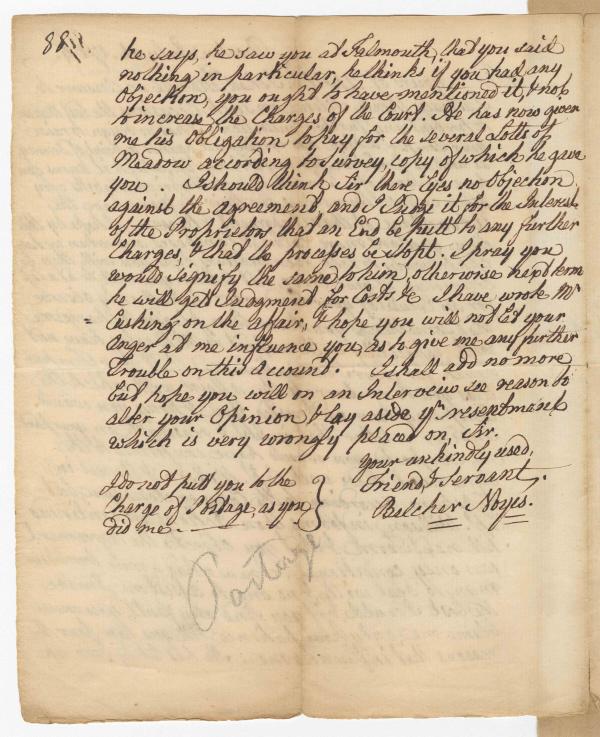 88
he says, he saw you at Falmouth, that you said
nothing in particular, he thinks if you had any
Objection, you ought to have mentioned it, & not
to increase the Charges of the Court. He has now given
me his Obligation to pay for the several Lotts of
Meadow according to survey, copy of which he gave
you. I should think Sir there lyes no Objection
against the agreement, and I Judge it for the Interest
of the Proprietors that an End be putt to any further
Charges, & that the processes be stopt. I pray you
would signify the same to him, otherwise next term
he will gett Judgment for Costs &c I have wrote Mr
Cushing on the affair, & hope you will not Let your
anger at me influence you, as to give me any further
Trouble on this Account. I shall add no more
but hope you will on an Interview see reason to
alter your Opinion & lay aside yr resentment
which is very wrongly placed on, Sir.
Your unkindly used,
Friend, & Servant,
Belcher Noyes.
I do not putt you to the
Charge of Postage, as you
did me.
Postage